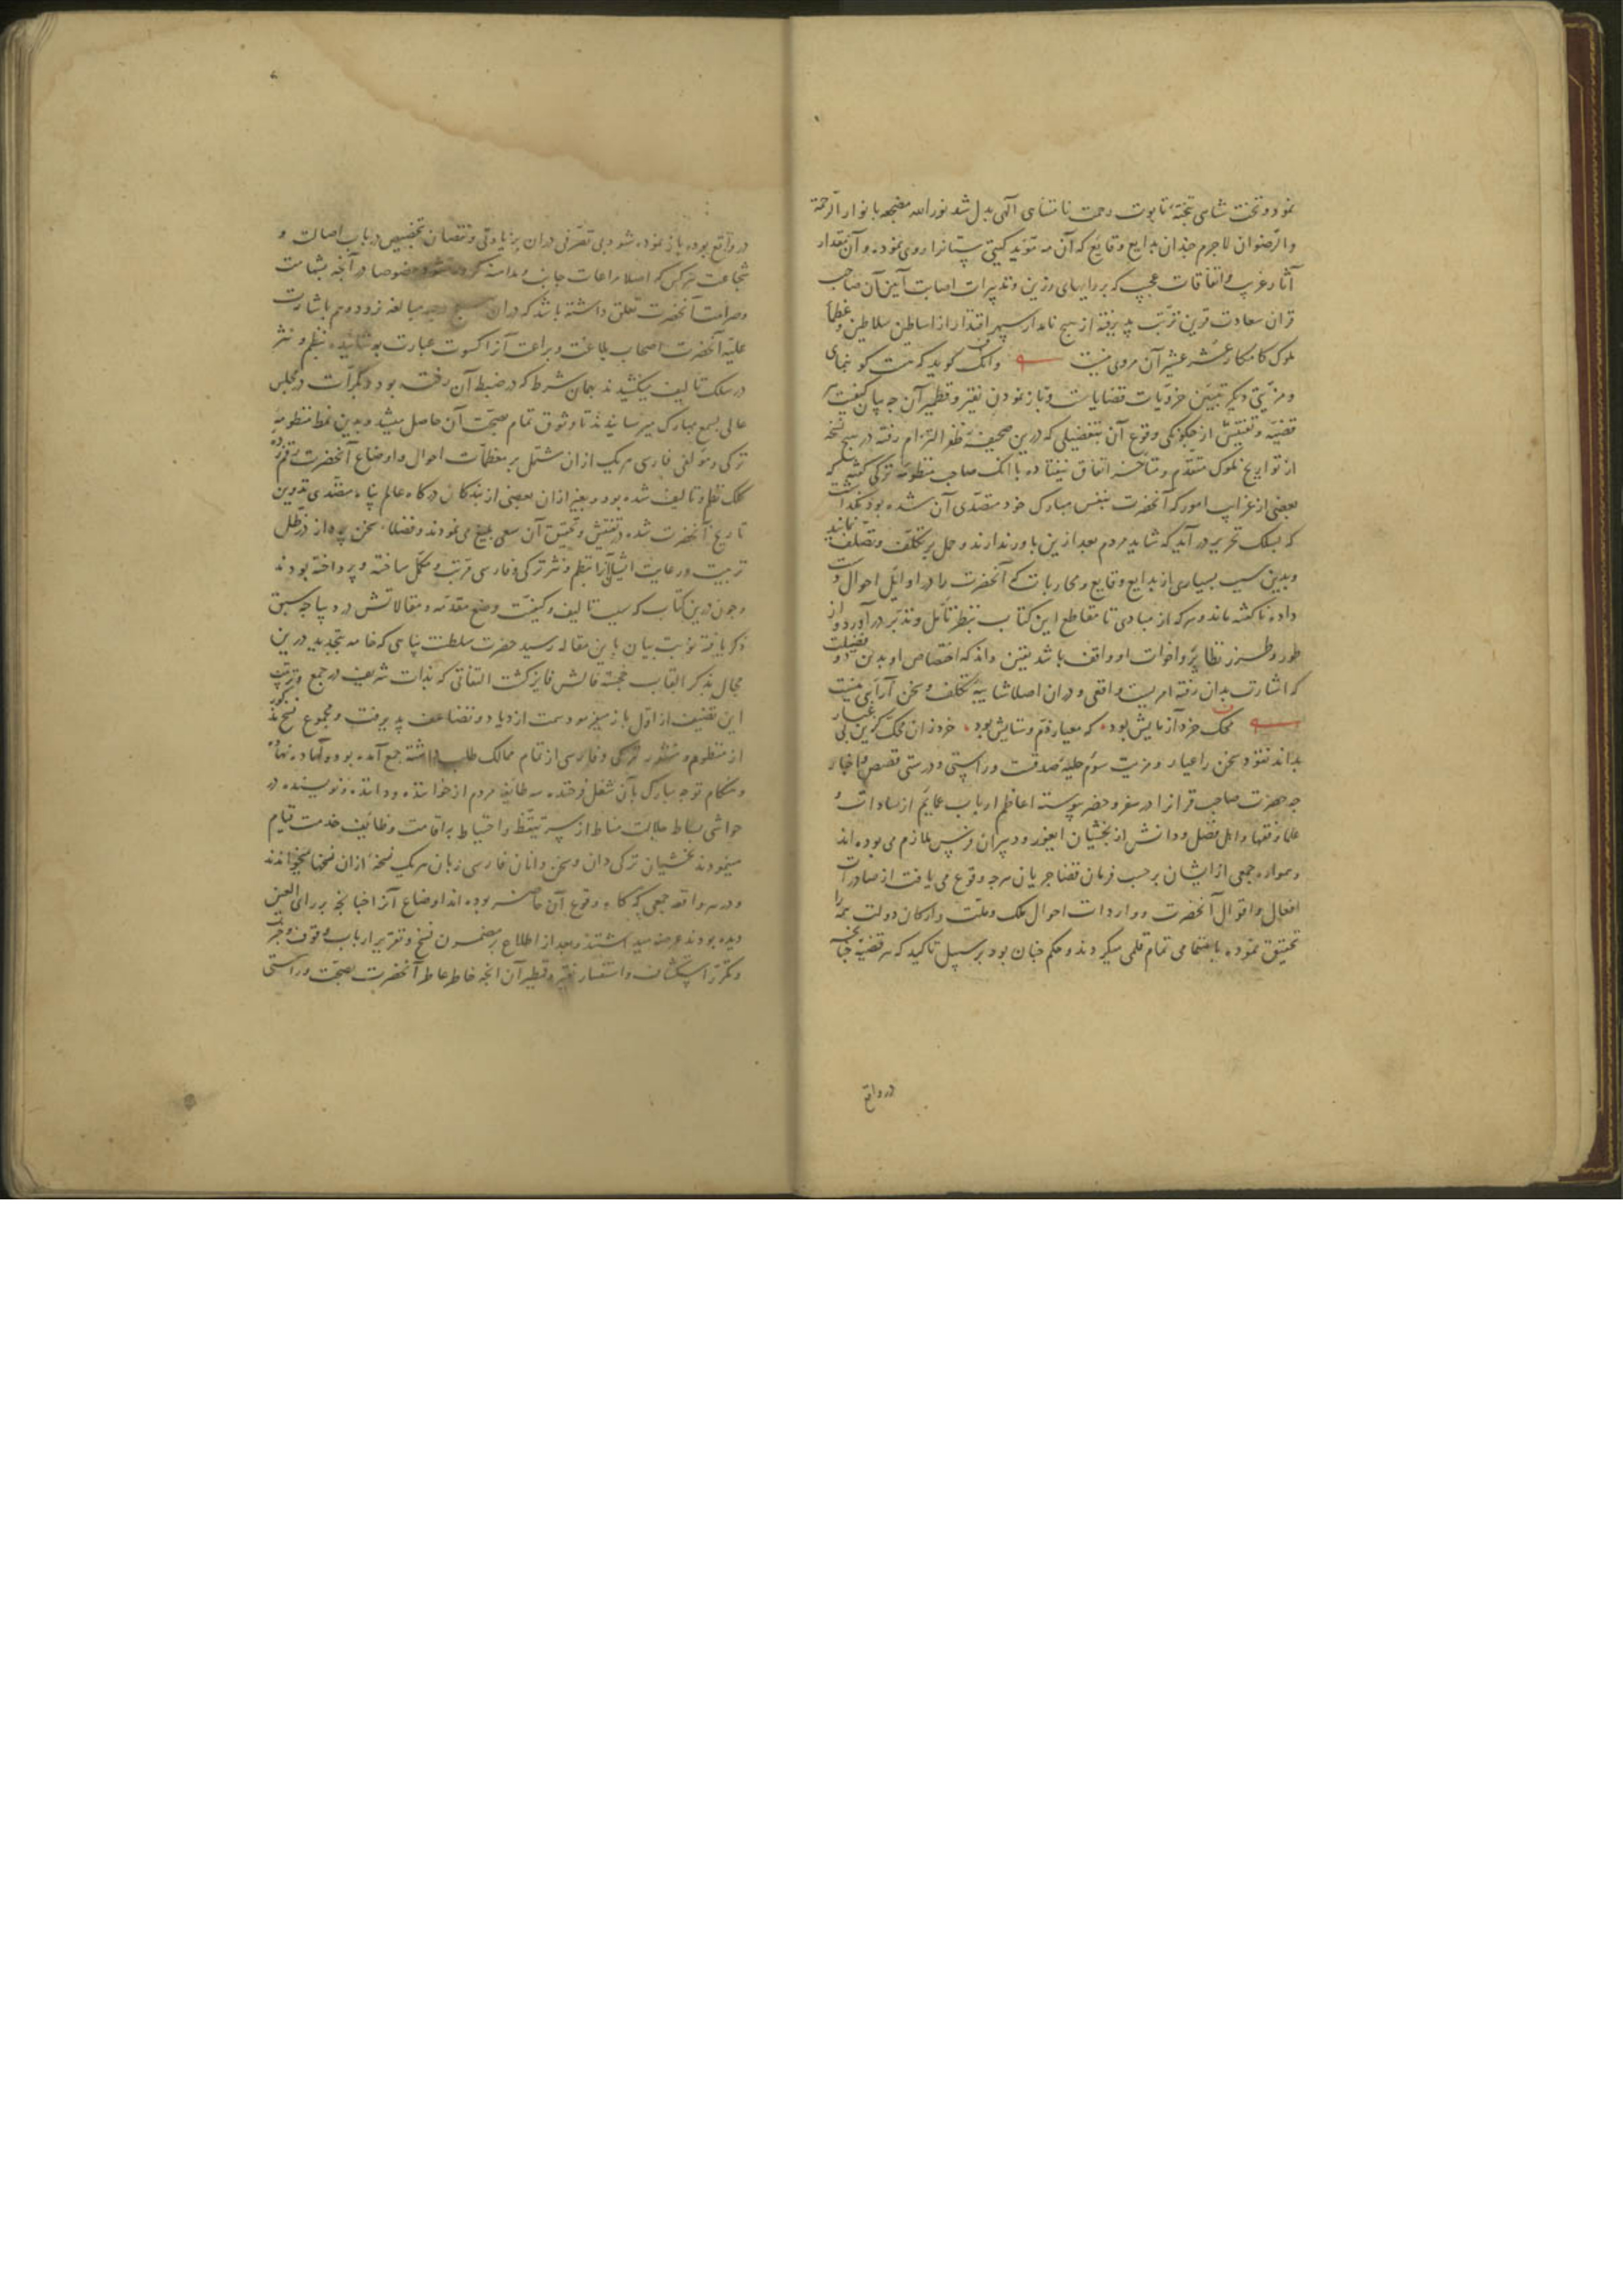 نمود و تخت شاهی بتخته تابوت رحمت نامتناهی الهی بدل شد نور الله مضجعه بانوار الرحمة
والرضوان لاجرم چندان بدایع وقایع که آن مؤید کیتی ستانرا روی نموده و آن مقدار
آثار غریب و اتفاقات عجیب که بر رایهای رزین و تدبیرات اصابت آیین آن صاحب
قران سعادت قرین ترتب پذیرفته از هیچ نامدار سپهر اقتدار از اساطین سلاطین و عظماء
ملوک کامکار عشر عشیر آن مروی نیست وانک کوید که هست کو بنمای
و مزیتی دیکر تبیین جزویات قضایاست و باز نمودن نقیر و قطمیر آن چه بیان کیفیت هر
قضیه و تفتیش از چکونکی وقوع آن بتفصیلی که درین صحیفه ظفر التزام رفته در هیچ نسخه
از تواریخ ملوک متقدم و متاخر اتفاق نیفتاده با انک صاحب منظومه ترکی کفته که
بعضی از غرایب امور که آنحضرت بنفس مبارک خود متصدی آن شده بود نکذاشت
که بسلک تحریر در آید که شاید مردم بعد ازین باور ندارند و حمل بر تکلف و تصلف نمایند
و بدین سبب بسیاری از بدایع وقایع و محاربات که آنحضرت را در اوایل احوال دست
داده ناکفته ماند و هرکه از مبادی تا مقاطع این کتاب بنظر تامل و تدبر در آورد و از
طور و طرز نظایر و اخوات او واقف باشد یقین داند که اختصاص او بدین دو فضیلت
که اشارت بدان رفته امریست واقعی و دران اصلا شایبه تکلف و سخن آرایی نیست
محک خرد آزمایش بود که معیار ذم و ستایش بود خرد زان محک کزین بی غبار
بداند نقود سخن را عیار و مزیت سوم حلیه صدقست و راستی و درستی قصص و اخبار
چه حضرت صاحب قرانرا در سفر و حضر پیوسته اعاظم ارباب عمایم از سادات و
علما و فقها و اهل فضل و دانش از بخشیان ایغور و دبیران فرس ملازم می بوده اند
و همواره جمعی از ایشان بر حسب فرمان قضا جریان هرچه وقوع می یافت از صادرات
افعال و اقوال آنحضرت و واردات احوال ملک و ملت و ارکان دولت همه را
تحقیق نموده باهتمامی تمام قلمی میکردند و حکم چنان بود بر سبیل تاکید که هر قضیه چنانچه
در واقع
در واقع بوده باز نموده شود بی تصرفی دران بزیادتی و نقصان بتخصیص در باب اصالت و
شجاعت هرکس که اصلا مراعات جانب و مداهنه کرده نشود خصوصا در آنچه بشهامت
و صرامت آنحضرت تعلق داشته باشد که دران هیچ مبالغه نرود و هم باشارت
علیه آنحضرت اصحاب بلاغت و براعت آنرا کسوت عبارت پوشانیده بنظم و نثر
در سلک تالیف میکشیدند بهمان شرط که در ضبط آن رفته بود و بکرات در مجلس
عالی بسمع مبارک میرسانیدند تا وثوق تمام بصحت آن حاصل میشد و بدین نمط منظومه
ترکی و مؤلفی فارسی هریک ازان مشتمل بر معظمات احوال و اوضاع آنحضرت رقم زده
کلک نظم و تالیف شده بود و بغیر ازان بعضی از بندکان درکاه عالم پناه متصدی تدوین
تاریخ آنحضرت شده در تفتیش و تحقیق آن سعی بلیغ می نمودند و فضلاء سخن پرداز در ظل
تربیت و رعایت ایشان آنرا بنظم و نثر ترکی و فارسی مرتب و مکمل ساخته و پرداخته بودند
و چون درین کتاب که سبب تالیف و کیفیت وضع مقدمه و مقالاتش در دیباچه سبق
ذکر یافته نوبت بیان باین مقاله رسید حضرت سلطنت پناهی که خامه بتجدید درین
مجال بذکر القاب خجسته فالش فایز کشت التفاتی که بذات شریف در جمع و ترتیب
این تصنیف از اول باز میفرمود سمت ازدیاد و تضاعف پذیرفت و مجموع نسخ مذکور
از منظوم و منثور ترکی و فارسی از تمام ممالک طلب داشته جمع آمده بود و آنها
و هنکام توجه مبارک بآن شغل فرخنده سه طایفه مردم از خواننده و داننده و نویسنده در
حواشی بساط جلالت مناط از سر تیقظ و احتیاط باقامت وظایف خدمت قیام
مینمودند بخشیان ترکی دان و سخن دانان فارسی زبان هریک نسخه ازان نسخها میخواندند
و در هر واقعه جمعی که کاه وقوع آن حاضر بوده اند اوضاع آنرا چنانچه برای العین
دیده بودند عرضه میداشتند و بعد از اطلاع بر مضمون نسخ و تقریر ارباب وقوف و خبرت
و مکرر استکشاف و استفسار نقیر و قطمیر آن آنچه خاطر عاطر آنحضرت بصحت و راستی